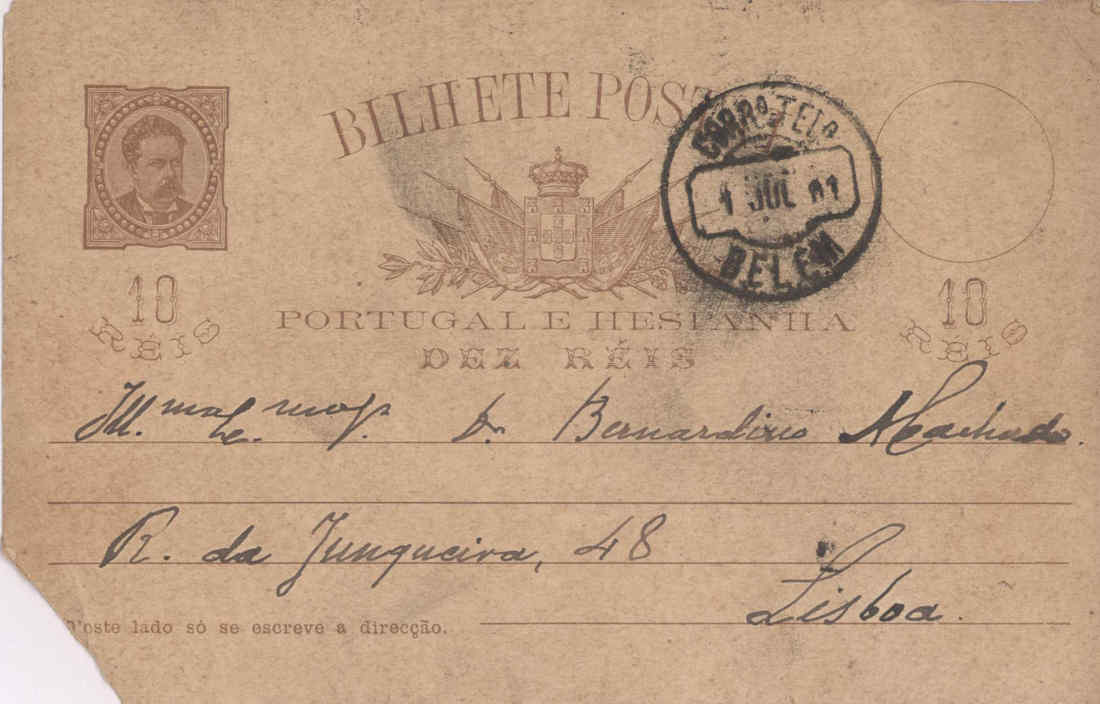 BILHETE POSTAL
CORRO. E TELO.
1 JUL 01
BELEM
10
RÉIS
10
RÉIS
PORTUGAL E HESPANHA
DEZ RÉIS
Ill.mo e Ex.mo Sr. Dr. Bernardino Machado.
R. da Junqueira, 48
Lisboa.
D'este lado só se escreve a direcção.